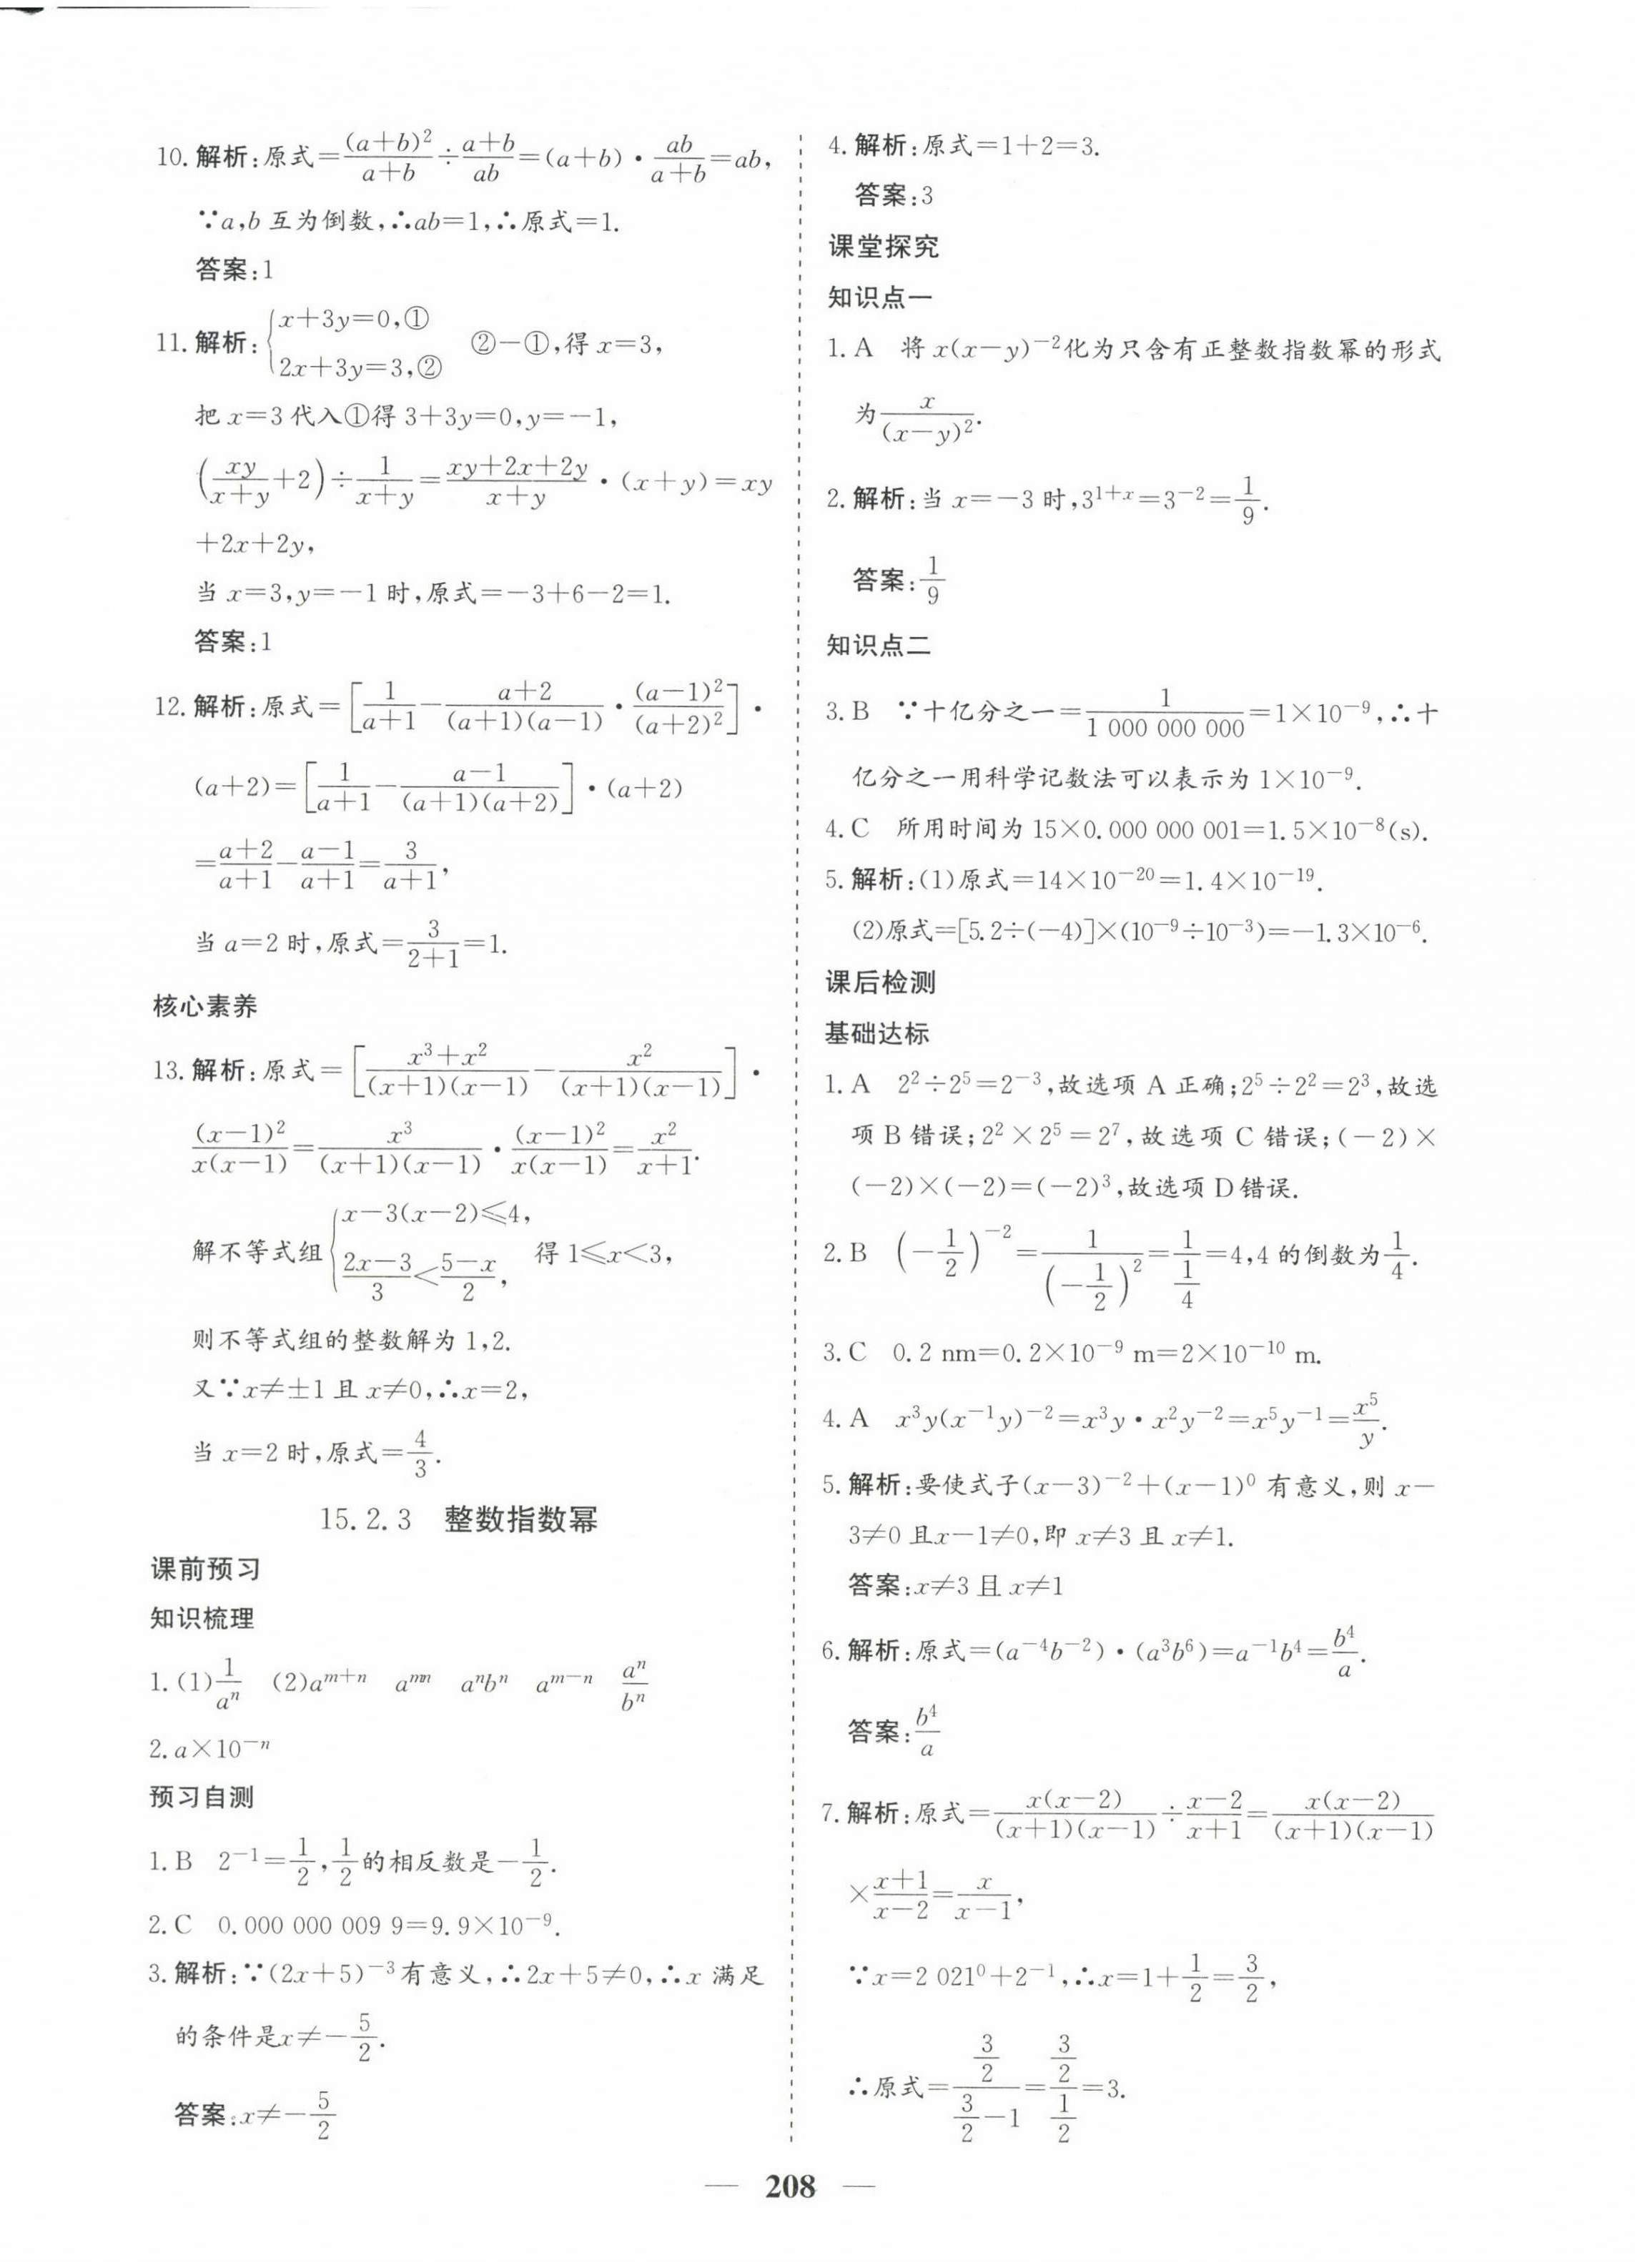 10. 解析:原式=\frac{(a+b)^2}{a+b}÷\frac{a+b}{ab}=(a+b)·\frac{ab}{a+b}=ab,
∵a,b 互为倒数,∴ab=1,∴原式=1.
答案:1
11. 解析:\begin{cases}x+3y=0,①\\2x+3y=3,②\end{cases} ②-①,得 x=3,
把 x=3 代入①得 3+3y=0,y=-1,
(\frac{xy}{x+y}+2)÷\frac{1}{x+y}=\frac{xy+2x+2y}{x+y}·(x+y)=xy
+2x+2y,
当 x=3,y=-1 时,原式=-3+6-2=1.
答案:1
12. 解析:原式=[\frac{1}{a+1}-\frac{a+2}{(a+1)(a-1)}·\frac{(a-1)^2}{(a+2)^2}]·
(a+2)=[\frac{1}{a+1}-\frac{a-1}{(a+1)(a+2)}]·(a+2)
=\frac{a+2}{a+1}-\frac{a-1}{a+1}=\frac{3}{a+1},
当 a=2 时,原式=\frac{3}{2+1}=1.
核心素养
13. 解析:原式=[\frac{x^3+x^2}{(x+1)(x-1)}-\frac{x^2}{(x+1)(x-1)}]·
\frac{(x-1)^2}{x(x-1)}=\frac{x^3}{(x+1)(x-1)}·\frac{(x-1)^2}{x(x-1)}=\frac{x^2}{x+1}.
解不等式组\begin{cases}x-3(x-2)≤4,\\\frac{2x-3}{3}<\frac{5-x}{2},\end{cases} 得 1≤x<3,
则不等式组的整数解为 1,2.
又∵x≠±1 且 x≠0,∴x=2,
当 x=2 时,原式=\frac{4}{3}.
15.2.3 整数指数幂
课前预习
知识梳理
1. (1)\frac{1}{a^n} (2)a^{m+n} a^{mn} a^nb^n a^{m-n} \frac{a^n}{b^n}
2. a×10^{-n}
预习自测
1. B 2^{-1}=\frac{1}{2},\frac{1}{2}的相反数是-\frac{1}{2}.
2. C 0.000 000 009 9=9.9×10^{-9}.
3. 解析:∵(2x+5)^{-3}有意义,∴2x+5≠0,∴x 满足
的条件是x≠-\frac{5}{2}.
答案:x≠-\frac{5}{2}
4. 解析:原式=1+2=3.
答案:3
课堂探究
知识点一
1. A 将 x(x-y)^{-2}化为只含有正整数指数幂的形式
为\frac{x}{(x-y)^2}.
2. 解析:当 x=-3 时,3^{1+x}=3^{-2}=\frac{1}{9}.
答案:\frac{1}{9}
知识点二
3. B ∵十亿分之一=\frac{1}{1 000 000 000}=1×10^{-9},∴十
亿分之一用科学记数法可以表示为 1×10^{-9}.
4. C 所用时间为 15×0.000 000 001=1.5×10^{-8}(s).
5. 解析:(1)原式=14×10^{-20}=1.4×10^{-19}.
(2)原式=[5.2÷(-4)]×(10^{-9}÷10^{-3})=-1.3×10^{-6}.
课后检测
基础达标
1. A 2^2÷2^5=2^{-3},故选项 A 正确;2^5÷2^2=2^3,故选
项 B 错误;2^2×2^5=2^7,故选项 C 错误;(-2)×
(-2)×(-2)=(-2)^3,故选项 D 错误.
2. B (-\frac{1}{2})^{-2}=\frac{1}{(-\frac{1}{2})^2}=\frac{1}{\frac{1}{4}}=4,4 的倒数为\frac{1}{4}.
3. C 0.2 nm=0.2×10^{-9} m=2×10^{-10} m.
4. A x^3y(x^{-1}y)^{-2}=x^3y·x^2y^{-2}=x^5y^{-1}=\frac{x^5}{y}.
5. 解析:要使式子(x-3)^{-2}+(x-1)^0 有意义,则 x-
3≠0 且x-1≠0,即 x≠3 且 x≠1.
答案:x≠3 且 x≠1
6. 解析:原式=(a^{-4}b^{-2})·(a^3b^6)=a^{-1}b^4=\frac{b^4}{a}.
答案:\frac{b^4}{a}
7. 解析:原式=\frac{x(x-2)}{(x+1)(x-1)}÷\frac{x-2}{x+1}=\frac{x(x-2)}{(x+1)(x-1)}
×\frac{x+1}{x-2}=\frac{x}{x-1},
∵x=2 021^0+2^{-1},∴x=1+\frac{1}{2}=\frac{3}{2},
∴原式=\frac{\frac{3}{2}}{\frac{3}{2}-1}=\frac{\frac{3}{2}}{\frac{1}{2}}=3.
— 208 —